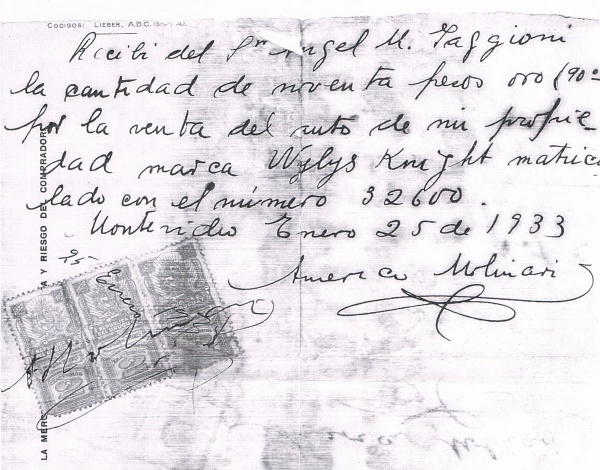 CODIGOS: LIEBER, A.B.C.
Recibi del Sr Angel M. Taggioni
la cantidad de noventa pesos oro (90
por la venta del auto de mi propie-
dad marca Wylys Knight matricu
lado con el número 32600.
Montevideo Enero 25 de 1933
Americo Molinari
25
Enero
A Y RIESGO DEL COMPRADOR
LA MERC